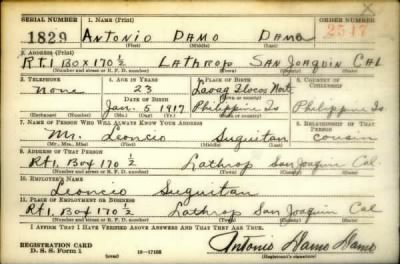 SERIAL NUMBER 1. NAME (Print) ORDER NUMBER
1829 ANTONIO DAMO DAMO 2517
(First) (Middle) (Last)
2. ADDRESS (Print)
Rt.1 Box 170 1/2 LATHROP SAN JOAQUIN CAL
(Number and street or R. F. D. number) (Town) (County) (State)
3. TELEPHONE 4. AGE IN YEARS 5. PLACE OF BIRTH 6. COUNTRY OF CITIZENSHIP
None 23 Laoag Ilocos Norte
DATE OF BIRTH (Town or county)
Jan. 5 1917 Philippine Is Philippine Is.
(Exchange) (Number) (Mo.) (Day) (Yr.) (State or country)
7. NAME OF PERSON WHO WILL ALWAYS KNOW YOUR ADDRESS 8. RELATIONSHIP OF THAT PERSON
Mr. Leoncio Suguitan cousin
(Mr., Mrs., Miss) (First) (Middle) (Last)
9. ADDRESS OF THAT PERSON
Rt 1, Box 170 1/2 Lathrop San Joaquin Cal.
(Number and street or R. F. D. number) (Town) (County) (State)
10. EMPLOYER'S NAME
Leoncio Suguitan
11. PLACE OF EMPLOYMENT OR BUSINESS
Rt 1, Box 170 1/2 Lathrop San Joaquin Cal
(Number and street or R. F. D. number) (Town) (County) (State)
I AFFIRM THAT I HAVE VERIFIED ABOVE ANSWERS AND THAT THEY ARE TRUE.
REGISTRATION CARD
D. S. S. Form 1 (over) 16—17105 Antonio Damo Damo
(Registrant's signature)